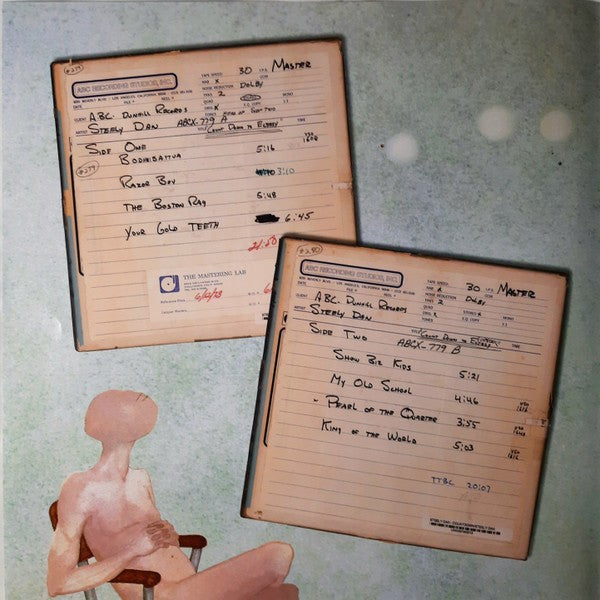 #279
ABC RECORDING STUDIOS, INC.
TAPE SPEED 30 I.P.S. MASTER
NOISE REDUCTION DOLBY
TRKS 2
CLIENT ABC. DUNHILL RECORDS
ARTIST STEELY DAN ABCX-779 A TITLE "COUNT DOWN TO ECSTASY" TIME
SIDE ONE
BODHISATTVA 5:16
#279
RAZOR BOY 3:10
THE BOSTON RAG 5:48
YOUR GOLD TEETH 6:45
21:50
THE MASTERING LAB
#280
ABC RECORDING STUDIOS, INC.
TAPE SPEED 30 I.P.S. MASTER
NOISE REDUCTION DOLBY
TRKS 2
CLIENT ABC. DUNHILL RECORDS
ARTIST STEELY DAN TITLE "COUNT DOWN TO ECSTASY" TIME
SIDE TWO ABCX-779 B
SHOW BIZ KIDS 5:21
MY OLD SCHOOL 4:46
- PEARL OF THE QUARTER 3:55
KING OF THE WORLD 5:03
TTBC 20:07